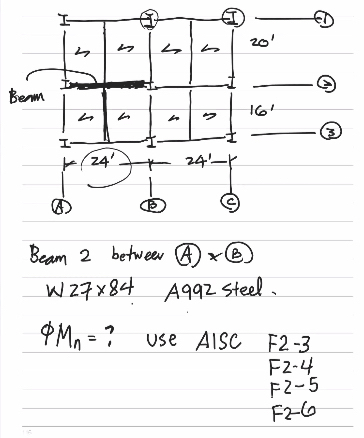 1
20'
Beam
2
16'
3
24'
24'
A
B
C
Beam 2 between A & B
W27x84 A992 steel.
ϕMn = ? use AISC F2-3
F2-4
F2-5
F2-6